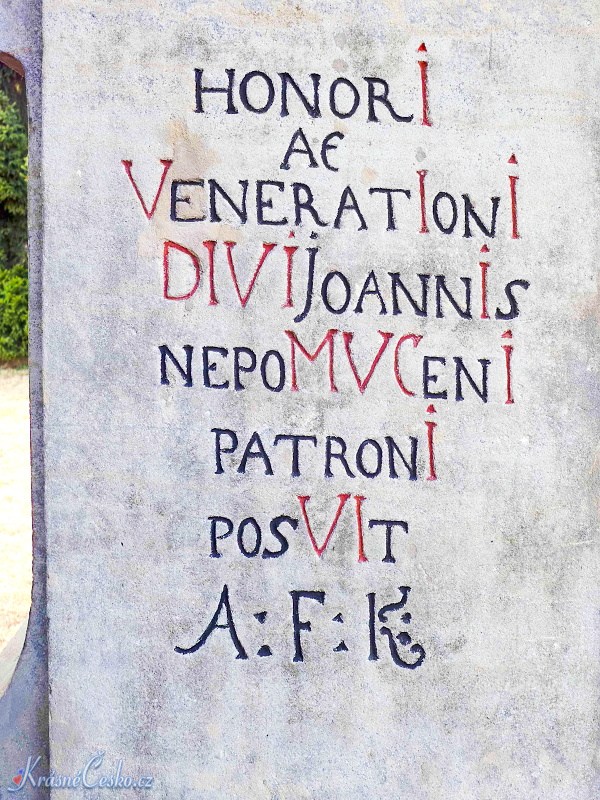 HONORI
AE
VENERATIONI
DIVI JOANNIS
NEPOMVCENI
PATRONI
POSVIT
A:F:K:
KrásnéČesko.cz